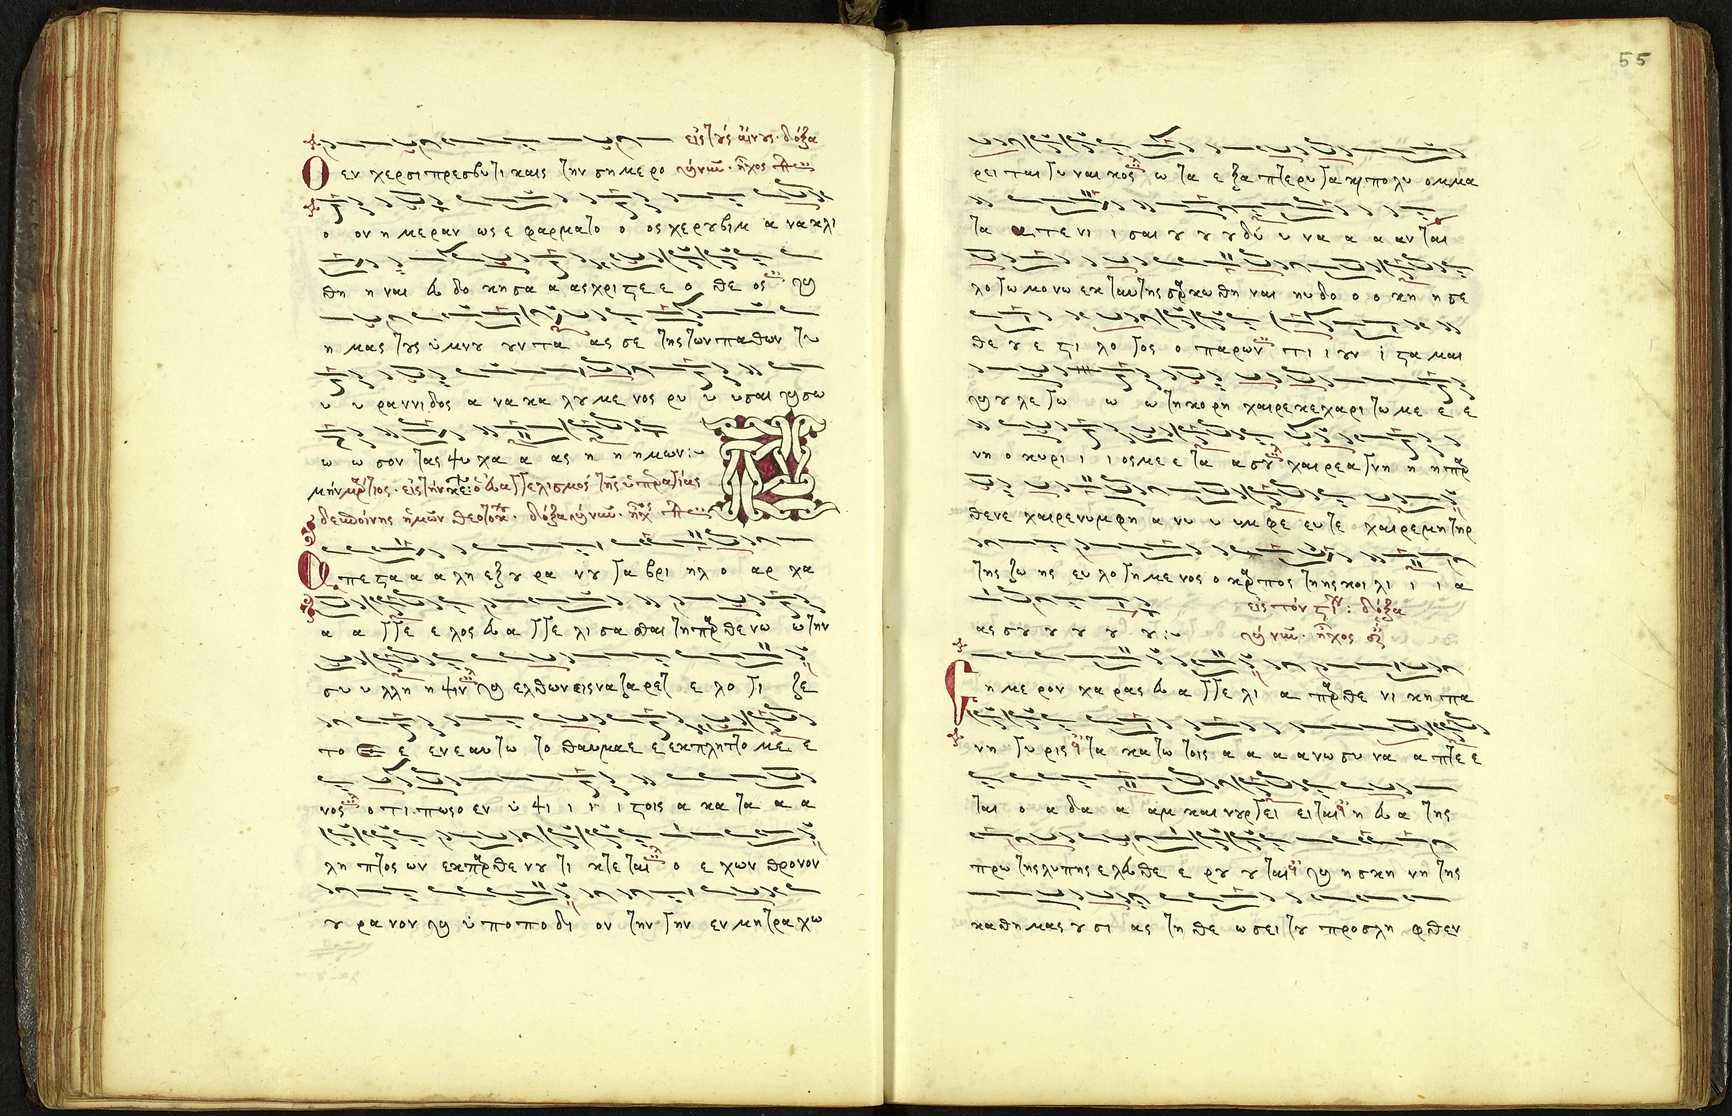 εἰς τοὺς αἴνους· δόξα
Ο εν χερσι πρεσβυτι καις την σημερο καὶ νῦν· ἦχος πλ
ο ον η μεραν ως ε φ αρματο ο ος χερουβιμ α να κλι
θη η ναι ευ δο κη σα α ας χρι στε ε ο θε ος και
η μας τους ὑ μνου ουν τα ας σε της των παθων τυ
υ υ ραννιδος α να κα λου με νος ρυ υ υσαι και σω
ω ω σον τας ψυ χα α ας η η ημων:
μὴν μάρτιος· εἰς τὴν κε: ὁ ευαγγελισμος τῆς ὑπεραγίας
δεσποίνης ἡμῶν θεοτόκου· δόξα καὶ νῦν· ἦχος πλ
Α πε στα α α λη εξ ου ρα νου γα βρι ηλ ο αρ χα
α α γγε ε λος ευ α γγε λι σα σθαι τη παρθε νω ὢ την
συ υ λλη η ψιν και ελθων εις να ζα ρετ ε λο γι ζε
το ε ε εν ε αυ τω το θαυμα ε ε εκπλητ το με ε
νος ο τι πως ο εν ὑ ψι ι ι ι στοις α κα τα α α
λη πτος ων εκ παρθε νου τι κτε ται ο ε χων θρονον
ου ρα νον και ὑ πο πο δι ον την γην εν μη τρα χω
55
ρει ται γυ ναι κος ω τα ε ξα πτε ρυ γα κι πο λυ ομμα
τα α τε νι ι σαι ου ου ου δύ υ να α α αν ται
λο γω μο νω εκ ταυ της σαρκω θη ναι ηυ δο ο ο κη η σε
θε ου ε στι λο γος ο παρων τι ι ουν ι στα μαι
και ου λε γω ω ω τη κο ρη χαι ρε κε χα ρι τω με ε ε
νη ο κυ ρι ι ι ος με ε τα α σου χαι ρε α γνη η η παρ
θε νε χαι ρε νυμφη α νυ υ υμ φε ευ τε χαι ρε μη τηρ
της ζω ης ευ λο γη με νος ο καρπος τη ης κοι λι ι ι α
ας σου ου ου ου ου: εἰς τὸν στίχον: δόξα
καὶ νῦν· ἦχος
Σ η με ρον χα ρας ευ α γγε λι α παρθε νι κη πα
νη γυ ρις τα κα τω τοις α α α α νω συ να α πτε ε
ται ο α δα α αμ και νουρ γει ει ται η ευ α της
πρω της λυπης ε λευ θε ε ρου ου ται και η σκη νη της
καθ η μας ου σι ας τη θε ω σει του προ σλη φθεν